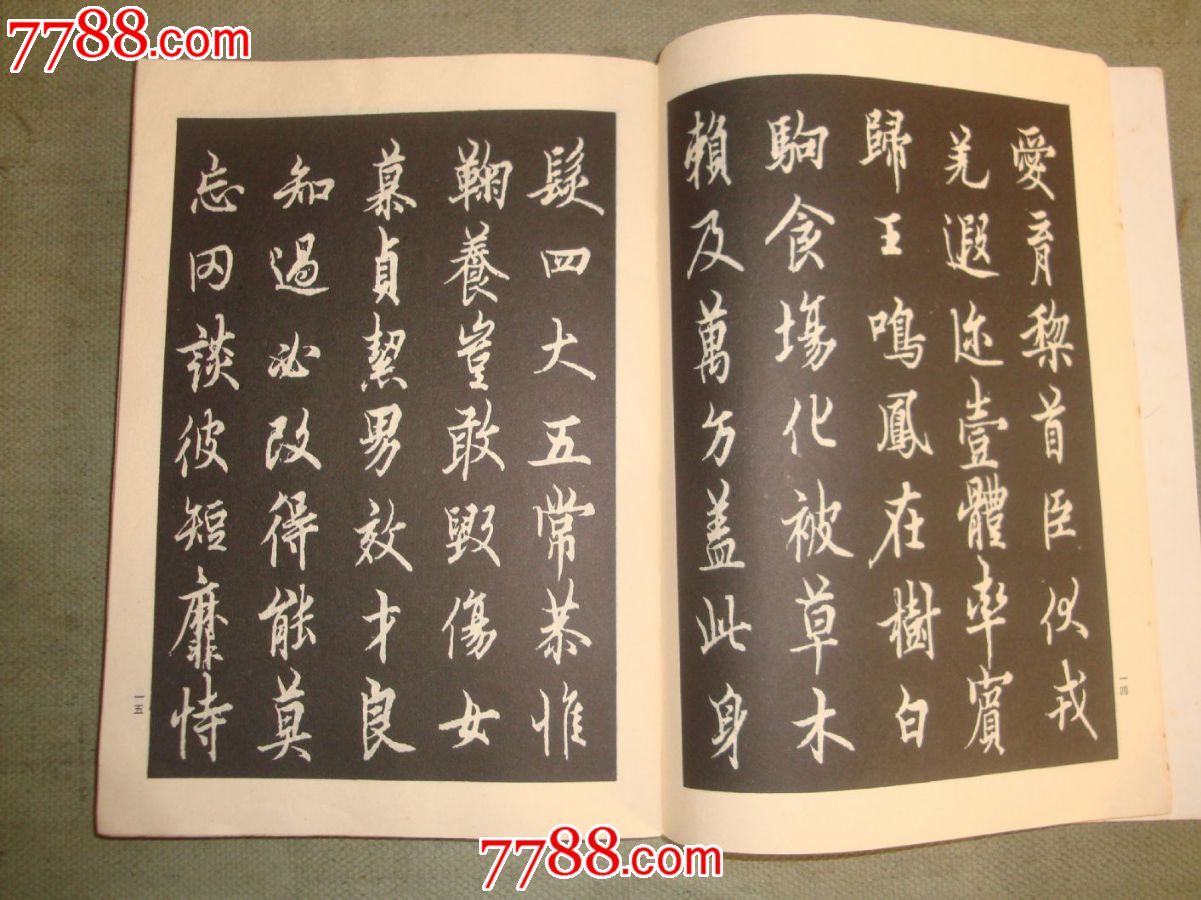 7788.com
7788.com
愛育黎首臣伏戎
羌遐迩壹體率賓
歸王鳴鳳在樹白
駒食塲化被草木
賴及萬方蓋此身
一四
髮四大五常恭惟
鞠養豈敢毀傷女
慕貞絜男效才良
知過必改得能莫
忘罔談彼短靡恃
一五
7788.com